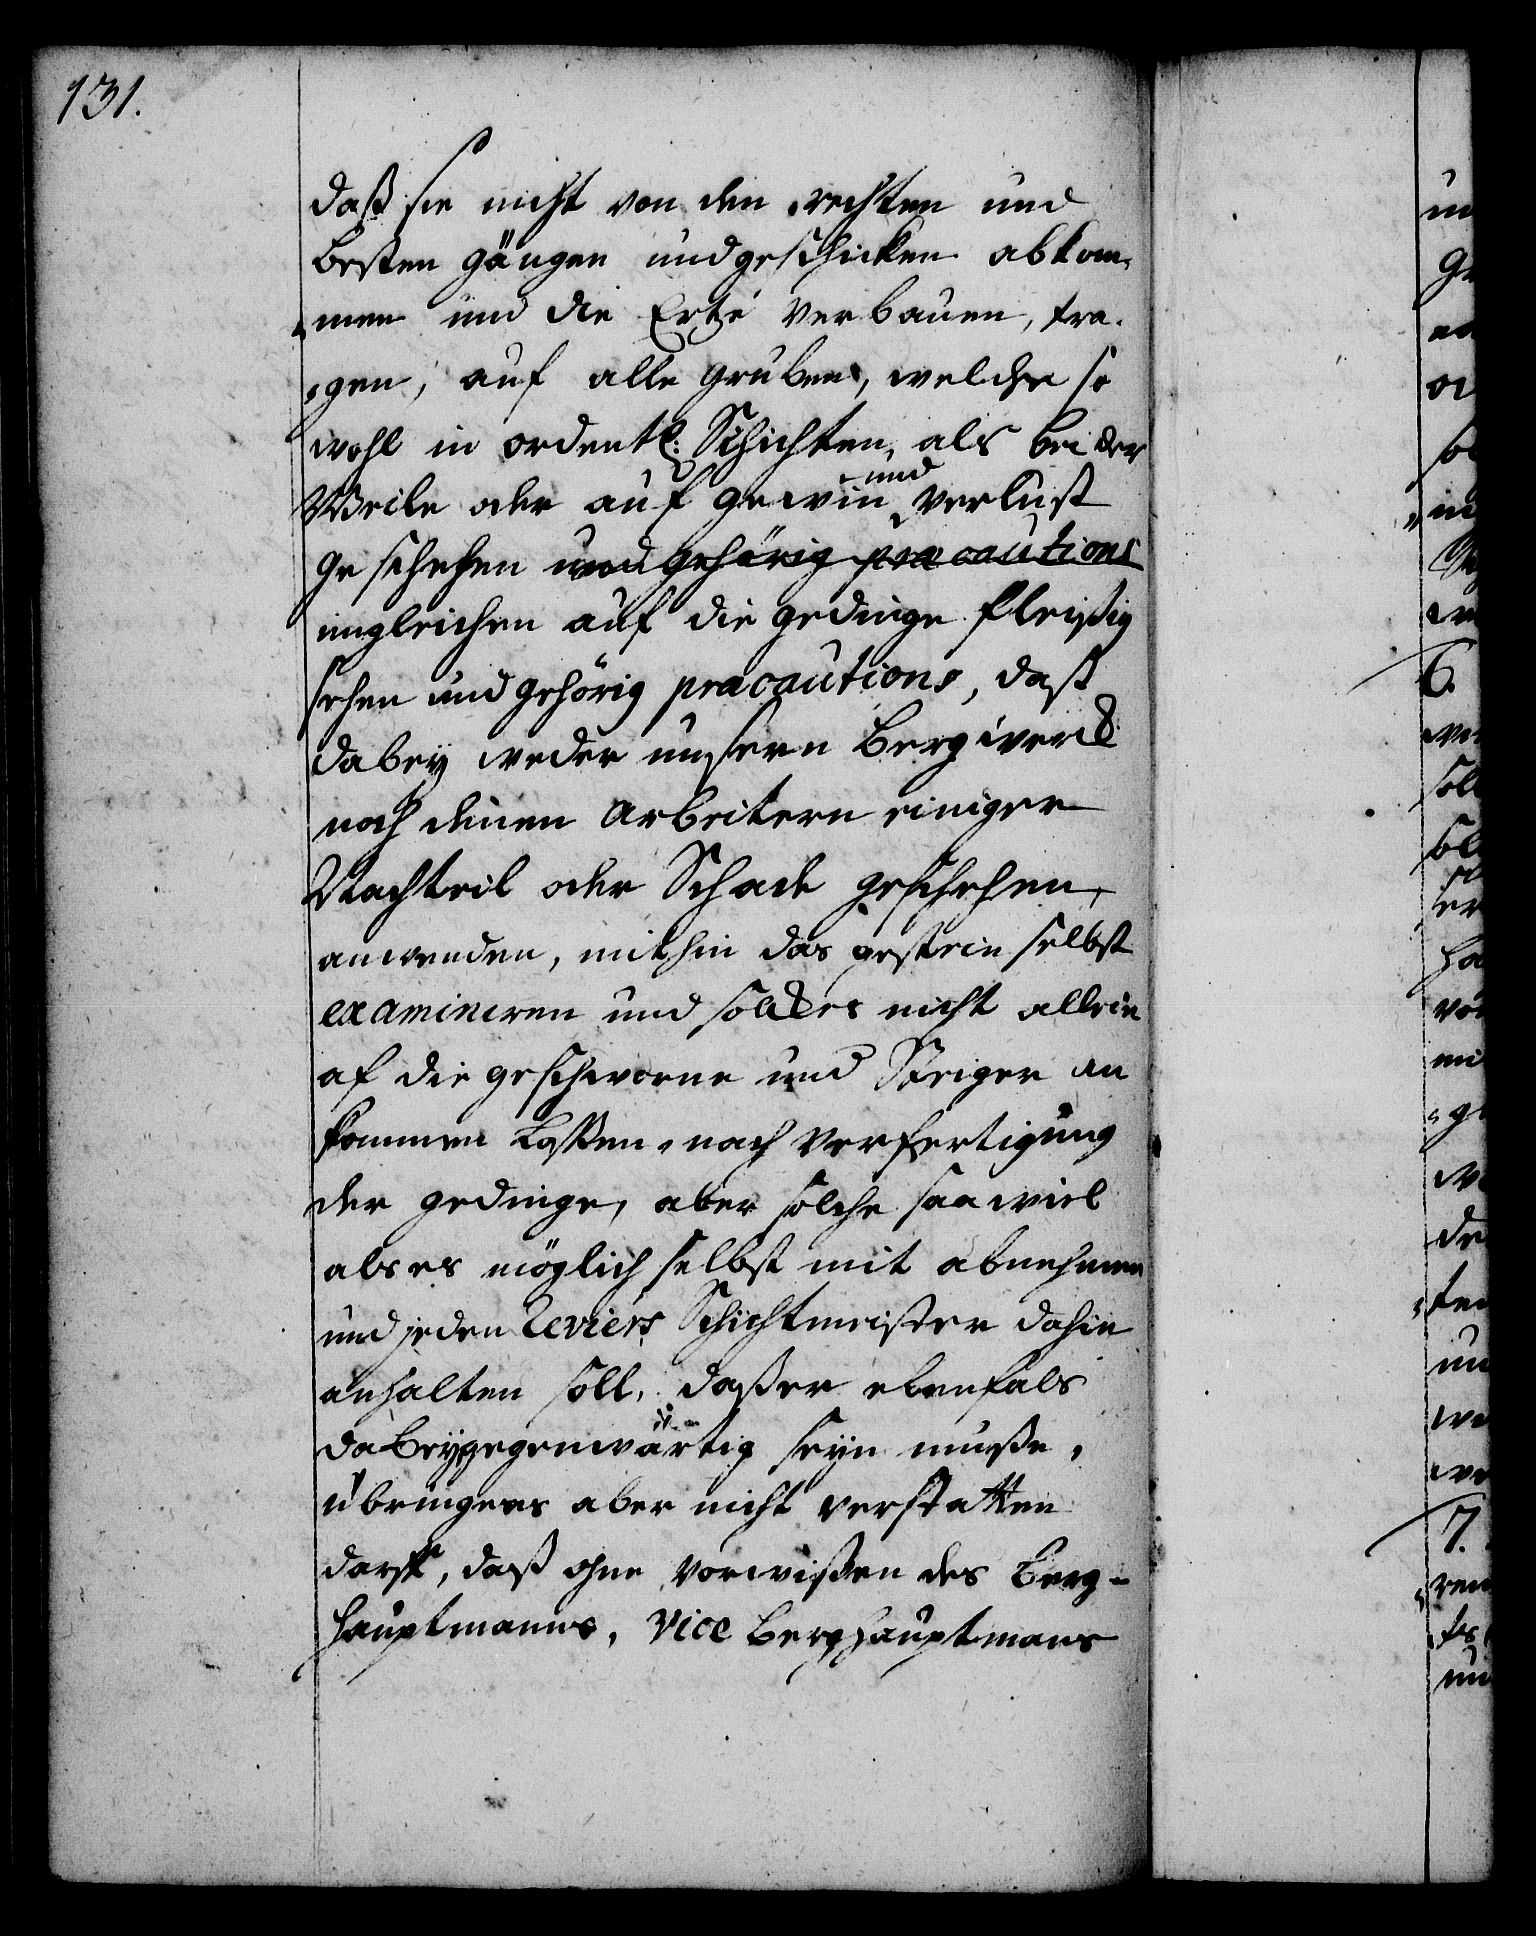 131.
daß sie nicht von den rechten und
besten gängen und geschicken abkom,
„men und die Ertze verbauen, tra.
„gen, auf alle gruben, welche so
wohl in ordentl: Schichten, als bei der
Weile oder auf gewin und verlust
geschehen und gehörig præcautions
imgleichen auf die gedinge fleißig
sehen und gehörig præcautions, daß
dabey weder unsern Bergwerck
noch denen Arbeitern einiger
Nachteil oder Schade geschehen,
anwenden, mithin das gestein selbst
examiniren und solches nicht allein
af die geschworne und Steiger an
kommen laßen, nach verfertigung
der gedinge, aber solche saa viel
als es möglich selbst mit abnehmen
und jeden Reviers Schichtmeister dahin
anhalten soll, daß er ebenfals
dabey gegenwärtig seyn muße,
übringens aber nicht verstatten
darff, daß ohne vorwißen des Berg-
hauptmanns, Vice Berghauptmans
6.
7.